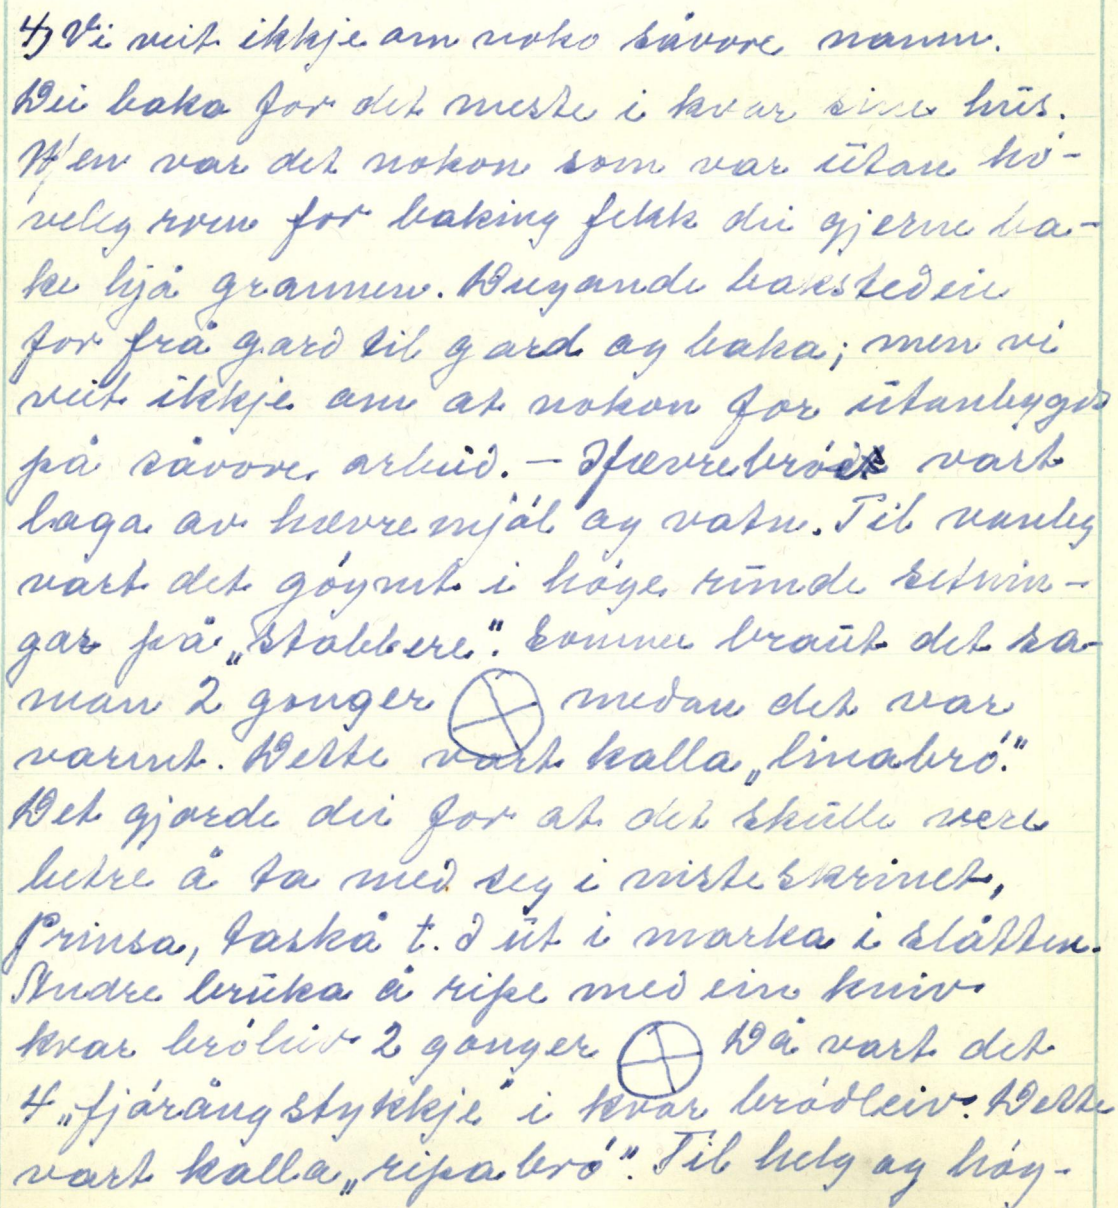 4) Vi veit ikkje om noko såvore namn.
Dei baka for det meste i kvar sine hūs.
Men var det nokon som var ūtan hó-
veleg rom for baking fekk dei gjerne ba-
ke hjå grannen. Dugande bakstedeie
for frå gard til gard og baka; men vi
veit ikkje om at nokon for ūtanbygds
på såvore arbeid. – Hævrebród vart
laga av hævremjól og vatn. Til vanleg
vart det góymt i hóge rūnde setnin-
gar på „stabbere". Somme braūt det sa-
man 2 gonger medan det var
varmt. Dette vart kalla „linabró".
Det gjorde dei for at det skūlle vere
betre å ta med seg i nisteskrinet,
Prinsa, taskå t. d ūt i marka i slåtten.
Andre brūka å ripe med ein kniv
kvar bróleiv 2 gonger Då vart det
4 „fjóràngstykkje" i kvar bródleiv. Dette
vart kalla „ripabró". Til helg og hóg-